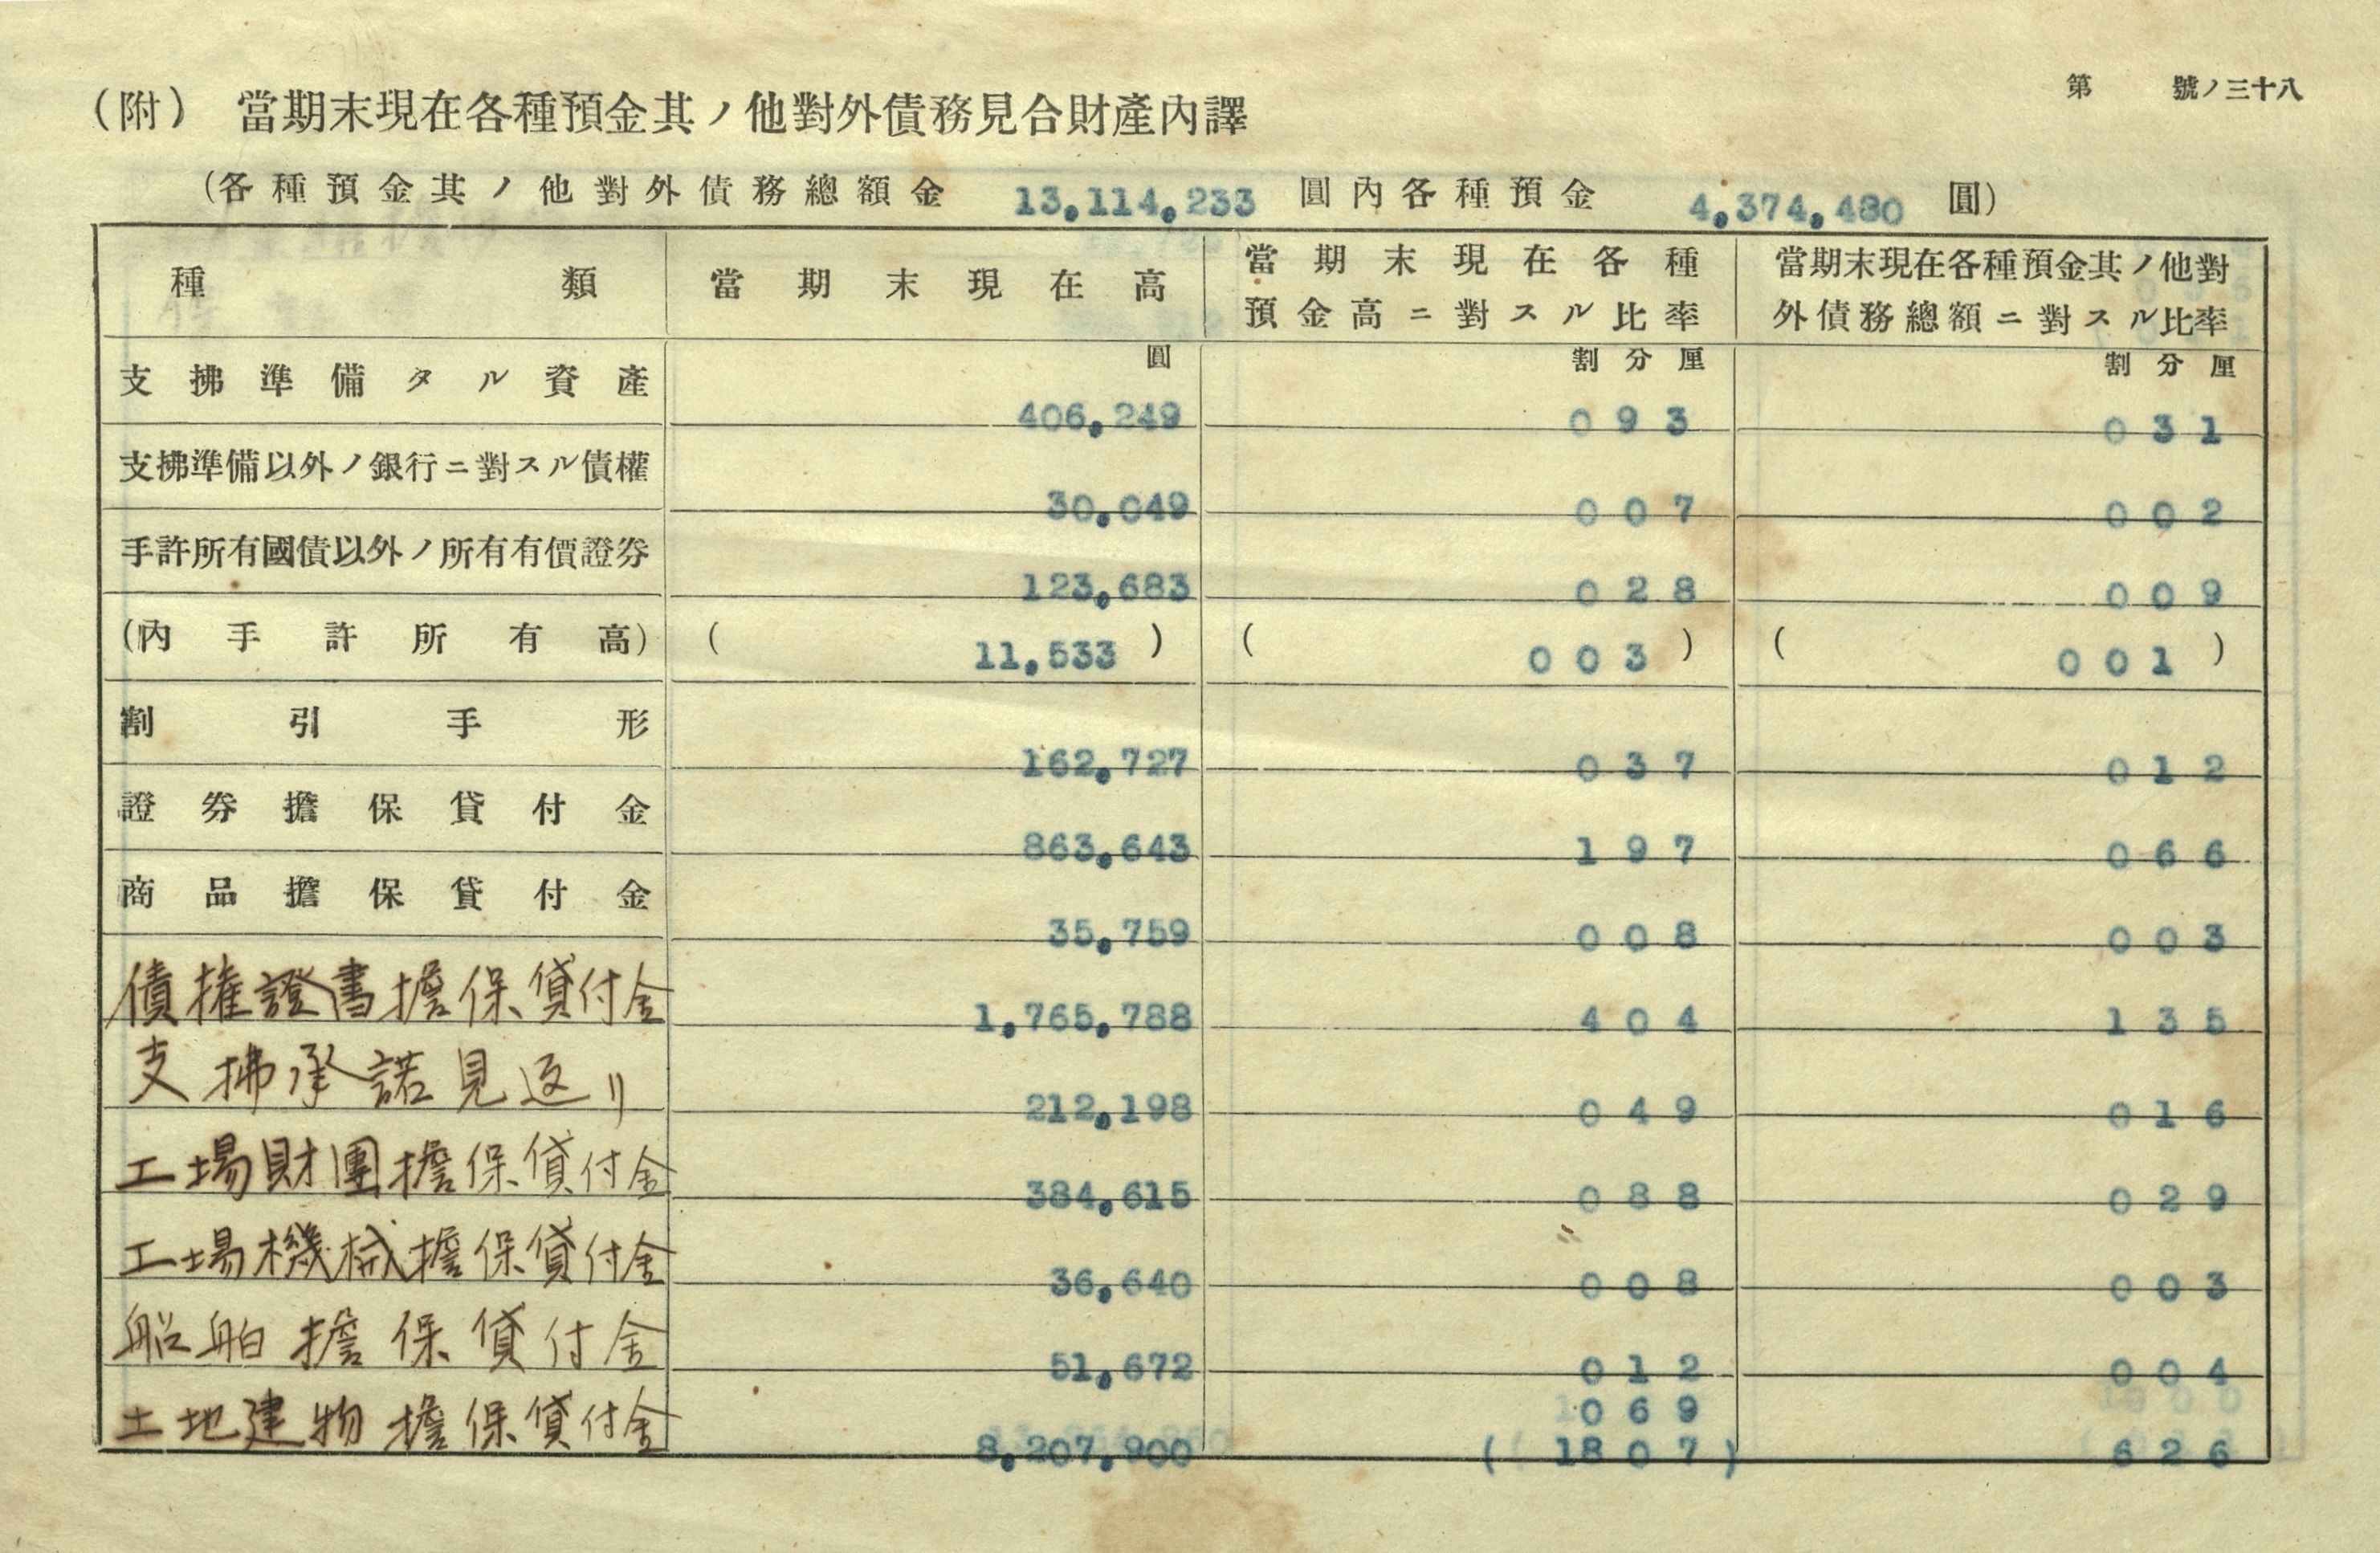 第 號ノ三十八
(附) 當期末現在各種預金其ノ他對外債務見合財產內譯
(各種預金其ノ他對外債務總額金 13,114,233 圓內各種預金 4,374,480 圓)
種類 當期末現在高 當期末現在各種預金高ニ對スル比率 當期末現在各種預金其ノ他對外債務總額ニ對スル比率
圓 割分厘 割分厘
支拂準備タル資產 406,249 093 031
支拂準備以外ノ銀行ニ對スル債權 30,049 007 002
手許所有國債以外ノ所有有價證券 123,683 028 009
(內手許所有高) (11,533) (003) (001)
割引手形 162,727 037 012
證券擔保貸付金 863,643 197 066
商品擔保貸付金 35,759 008 003
債権證書擔保貸付金 1,765,788 404 135
支拂承諾見返リ 212,198 049 016
工場財團擔保貸付金 384,615 088 029
工場機械擔保貸付金 36,640 008 003
船舶擔保貸付金 51,672 012 004
土地建物擔保貸付金 8,207,900 069 (1807) 626